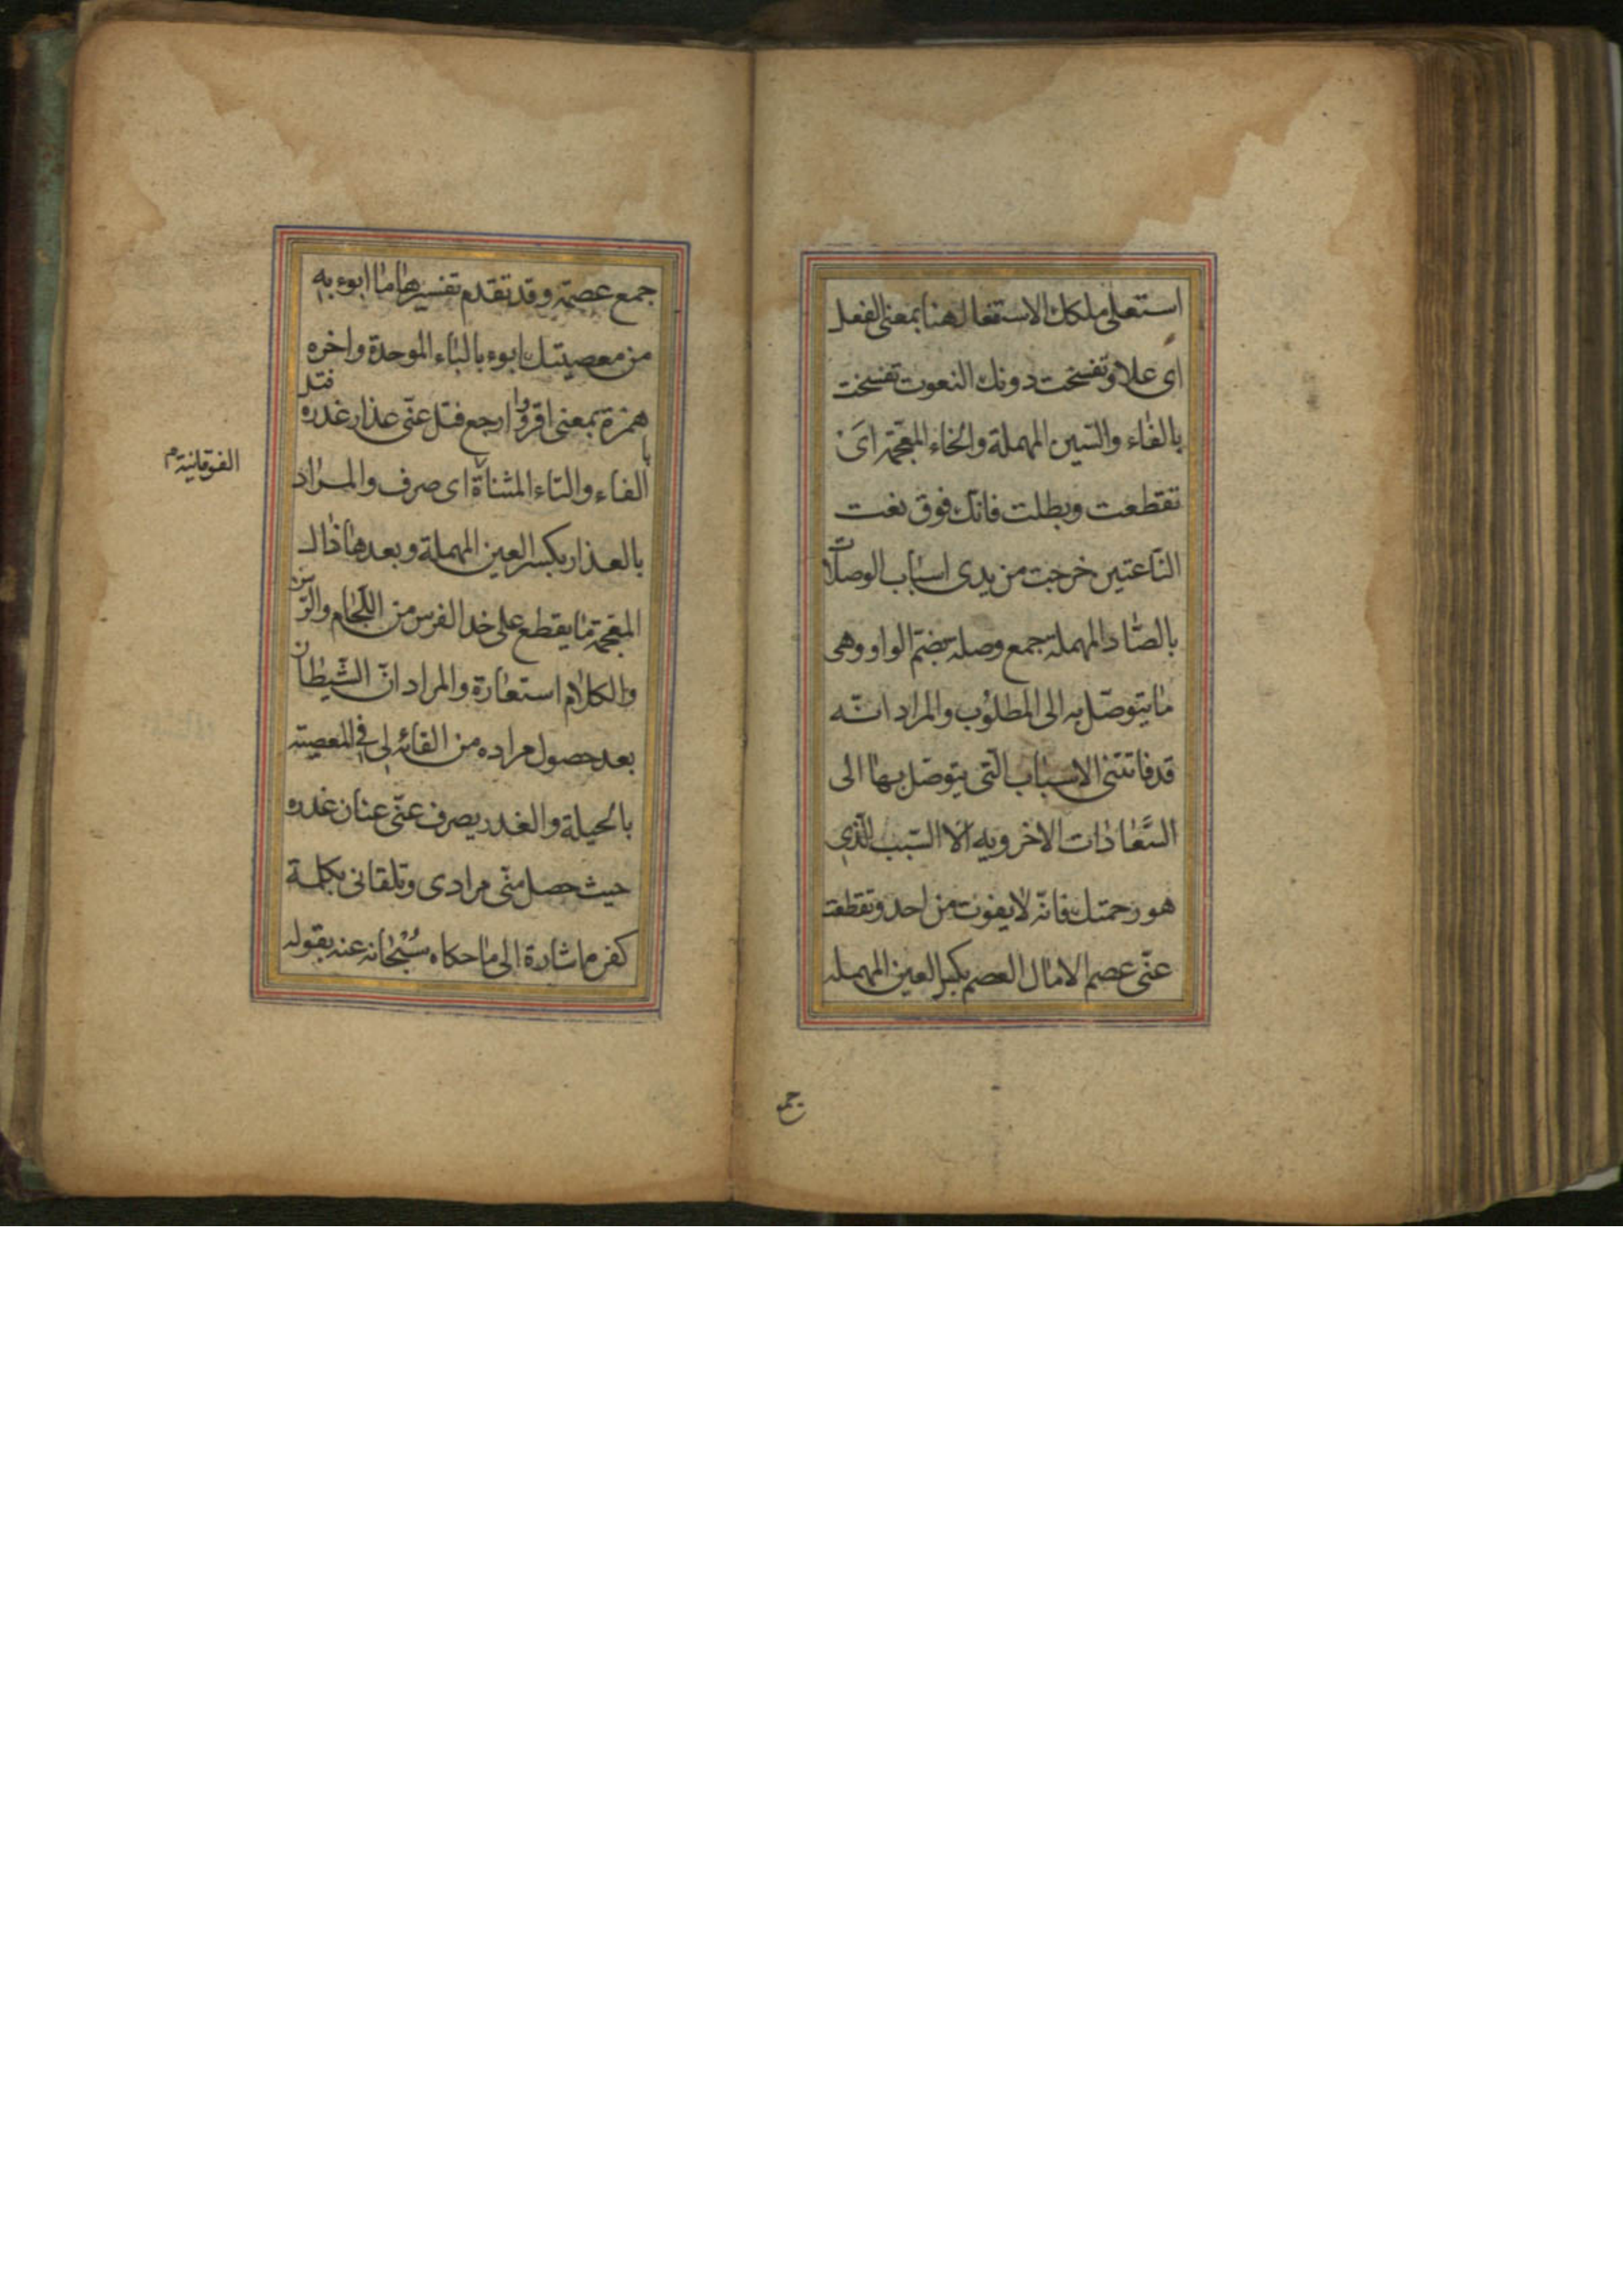 استعلى ملكك الاستفعال هنا بمعنى الفعل
اى علا وتفسخت دونك النعوت تفسخت
بالفاء والسّين المهملة والخاء المعجمة اىْ
تقطعت وبطلت فانك فوق نعت
النّاعتين خرجت من يدى اسباب الوصلات
بالصّاد المهملة جمع وصلة بضمّ الواو وهى
ما يتوصّل به الى المطلوب والمراد انّه
قد فاتتنى الاسباب الّتى يتوصّل بها الى
السَّعادات الاخرويه الا السّبب الّذي
هو رحمتك فانّه لا يفوت من احد وتقطعت
عنّى عصم الامال العصم بكسر العين المهمله
جمع
جمع عصمة وقد تقدم تفسيرها ما ابوء به
من معصيتك ابوء بالباء الموحدة واخره
همزة بمعنى اقرّ وا ارجع فتل عنّى عذار غدره فتل
با الفاء والتاء المثناة اى صرف والمراد
الفوقانية م
بالعذار بكسر العين المهملة وبعدها ذال
المعجمة ما يقطع على خد الفرس من اللّجام والرّسن
والكلام استعارة والمراد انّ الشّيطان
بعد حصول مراده من القائه لى في المعصية
بالحيلة والغدر يصرف عنّى عنان غدره
حيث حصل منّى مرادى وتلقانى بكلمة
كفره اشارة الى ما حكاه سُبْحانه عنه بقوله